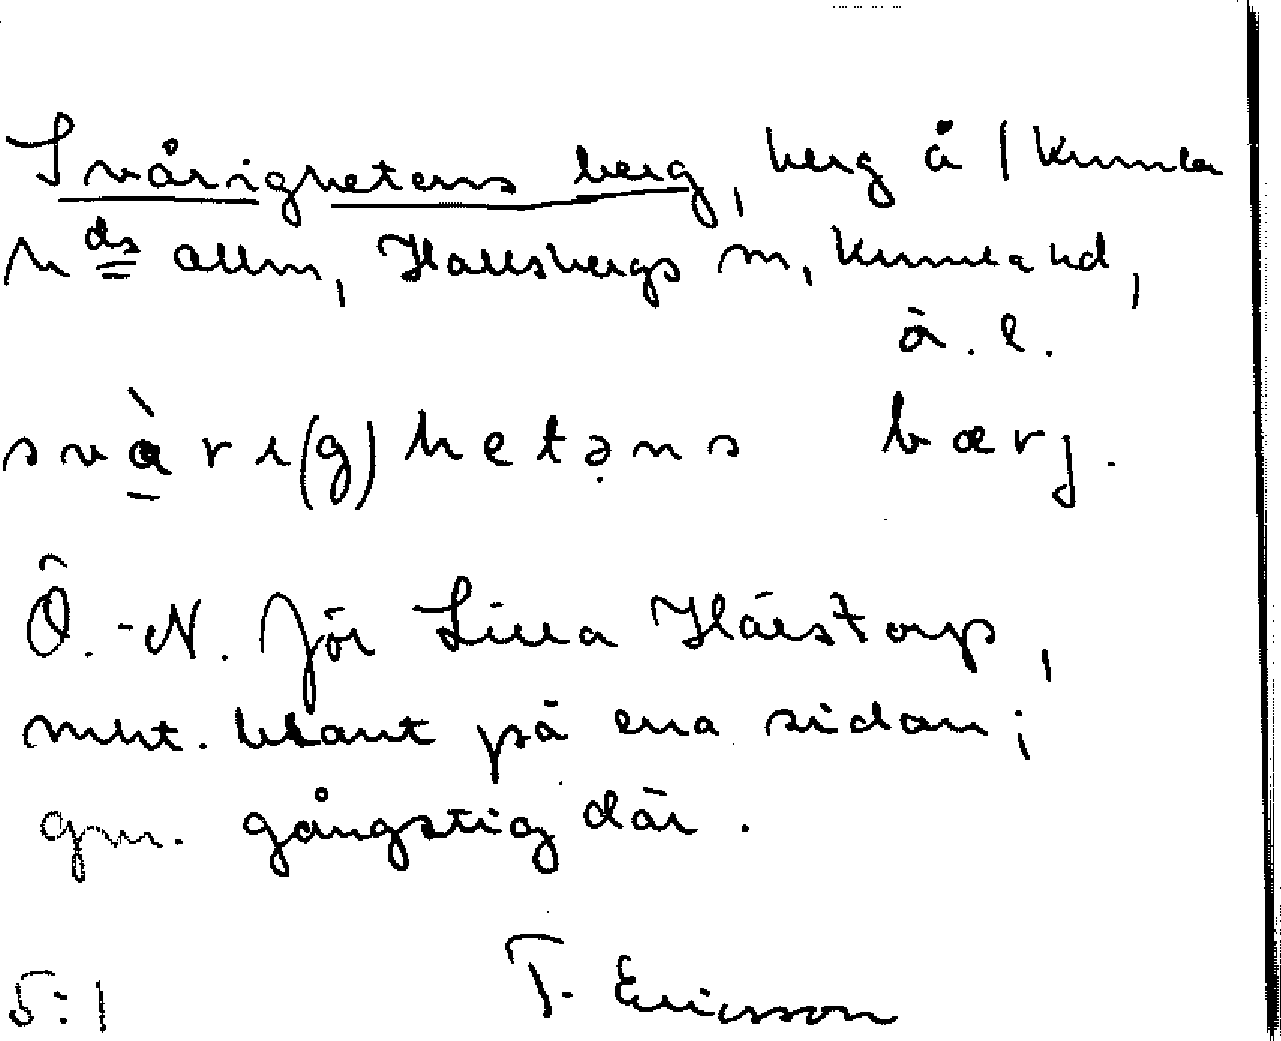 Svårighetens berg, berg å f Kumla
hds allm, Hallsbergs sn, Kumla hd,
Ö. l.
svåri(g)hetəns bærj.
Ö.-N. för Lilla Hälstorp,
mkt. brant på ena sidan;
gm. gångstig där.
5:1 T. Ericsson